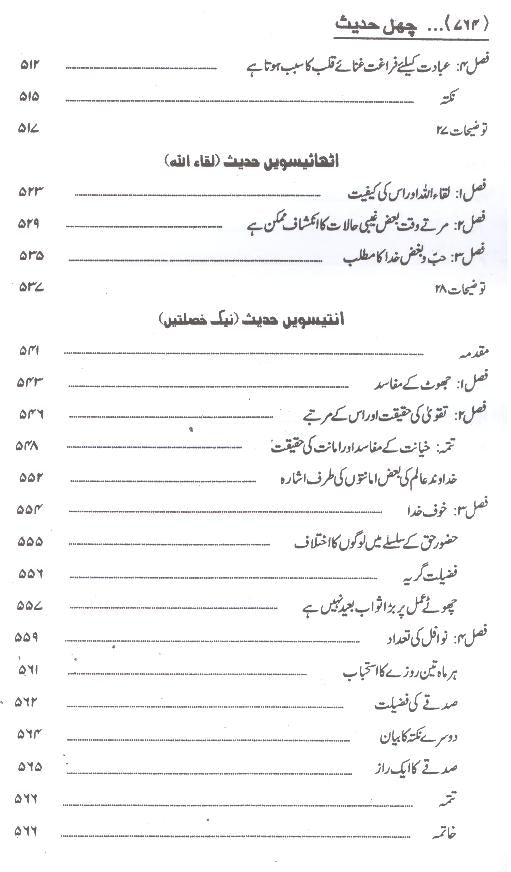 (۷۶۴)... چهل حدیث
فصل ۴: عبادت کیلئے فراغت غنائے قلب کا سبب ہوتا ہے ۵۱۲
نکتہ ۵۱۵
توضیحات ۲۷ ۵۱۷
اٹھائیسویں حدیث (لقاء اللہ)
فصل ۱: لقاء اللہ اور اس کی کیفیت ۵۲۳
فصل ۲: مرتے وقت بعض غیبی حالات کا انکشاف ممکن ہے ۵۲۹
فصل ۳: حبّ و بغض خدا کا مطلب ۵۳۵
توضیحات ۲۸ ۵۳۷
انتیسویں حدیث (نیک خصلتیں)
مقدمہ ۵۴۱
فصل ۱: جھوٹ کے مفاسد ۵۴۳
فصل ۲: تقویٰ کی حقیقت اور اس کے مرتبے ۵۴۶
تتمہ: خیانت کے مفاسد اور امانت کی حقیقت ۵۴۸
خداوند عالم کی بعض امانتوں کی طرف اشارہ ۵۵۲
فصل ۳: خوف خدا ۵۵۴
حضور حق کے سلسلے میں لوگوں کا اختلاف ۵۵۵
فضیلت گریہ ۵۵۶
چھوٹے عمل پر بڑا ثواب بعید نہیں ہے ۵۵۷
فصل ۴: نوافل کی تعداد ۵۵۹
ہر ماہ تین روزے کا استحباب ۵۶۱
صدقے کی فضیلت ۵۶۲
دوسرے نکتہ کا بیان ۵۶۴
صدقے کا ایک راز ۵۶۵
تتمہ ۵۶۶
خاتمہ ۵۶۶